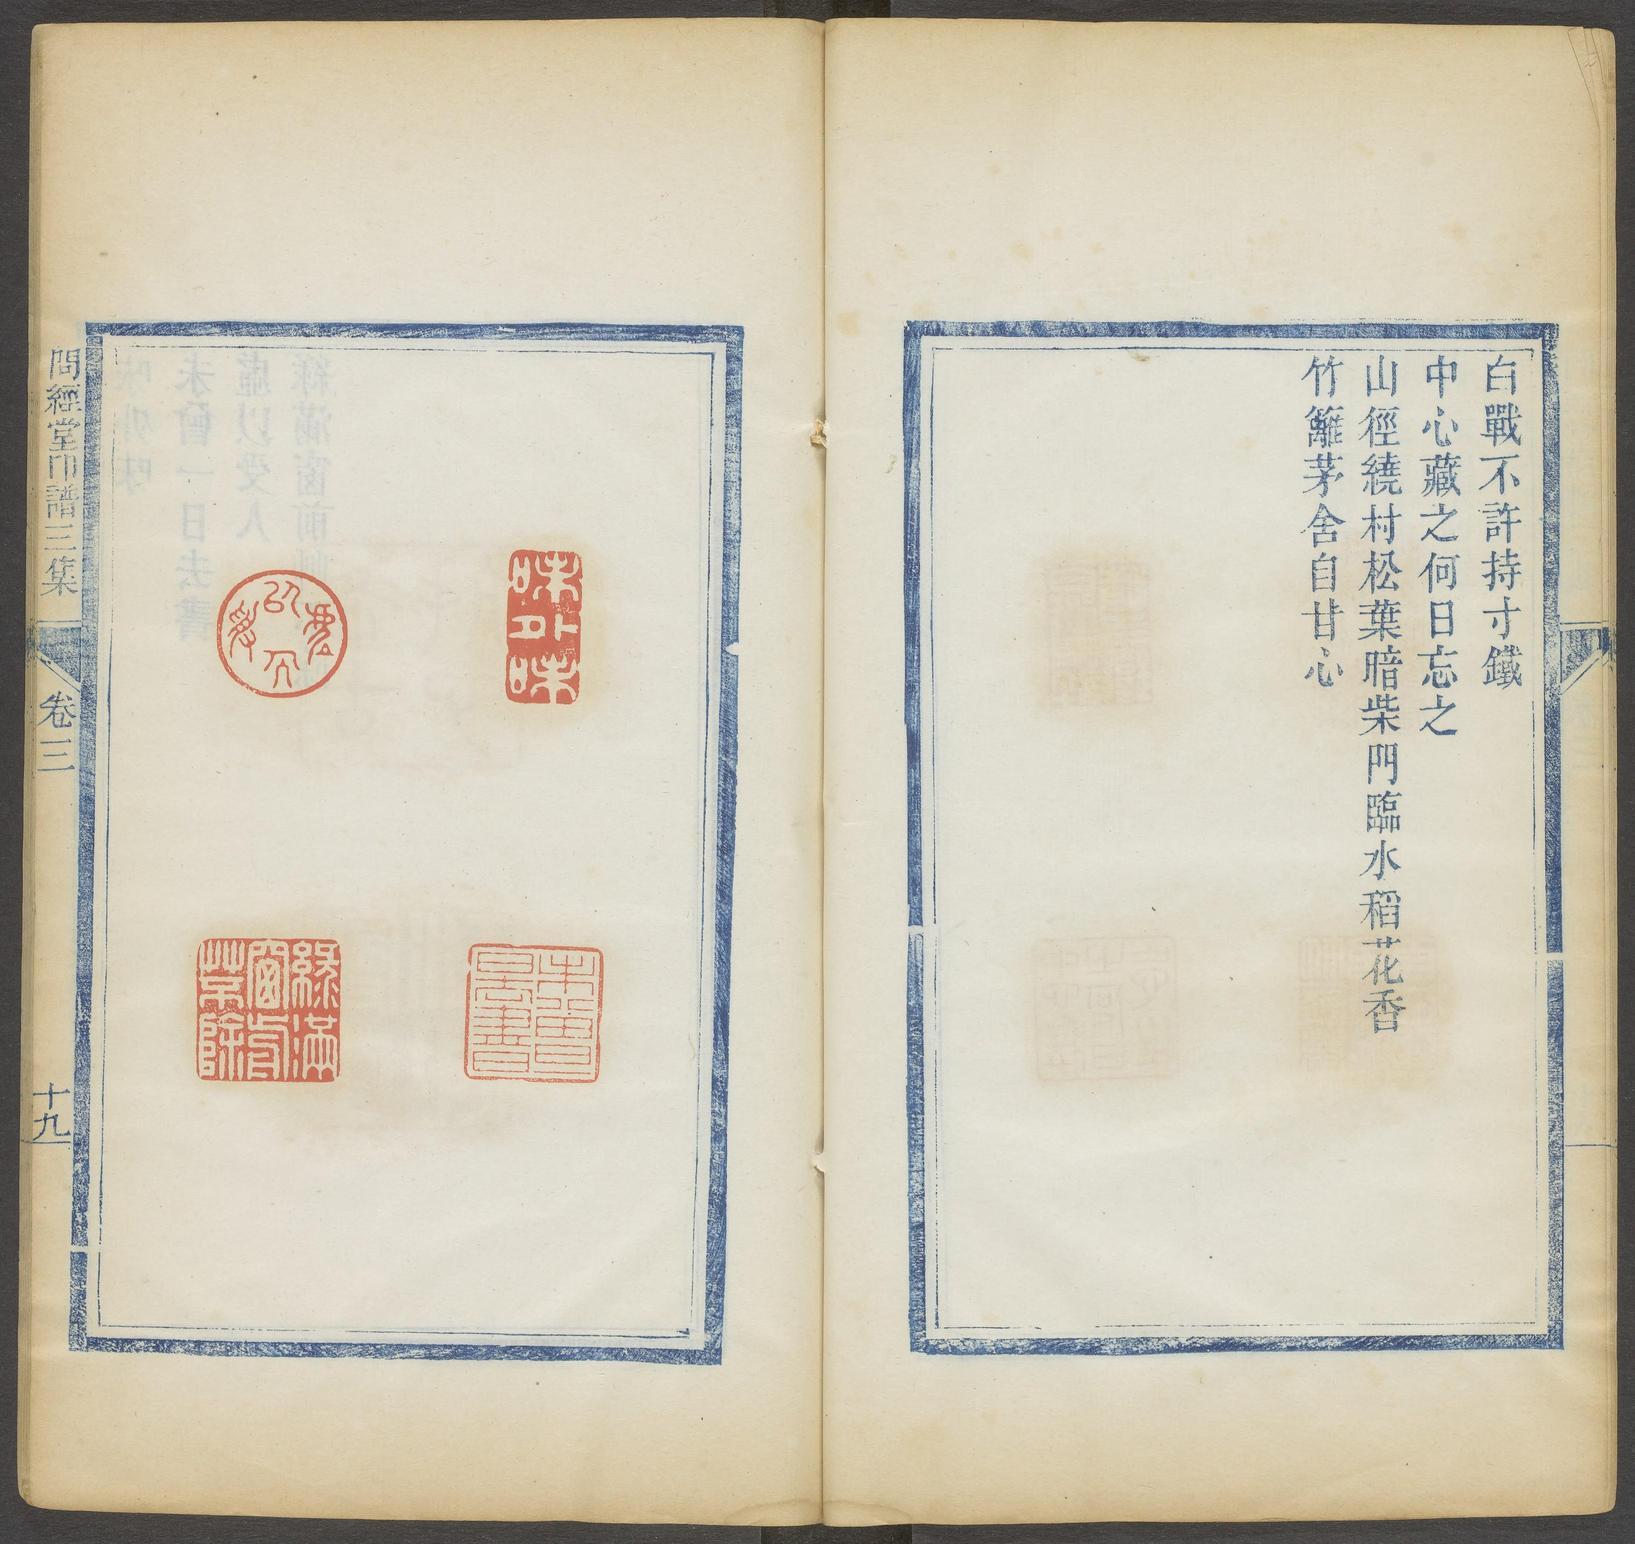 白戰不許持寸鐵
中心藏之何日忘之
山徑繞村松葉暗柴門臨水稻花香
竹籬茅舍自甘心
味外味
未曾一日去書
虛以受人
綠滿窗前草不除
問經堂印譜三集
卷三
十九